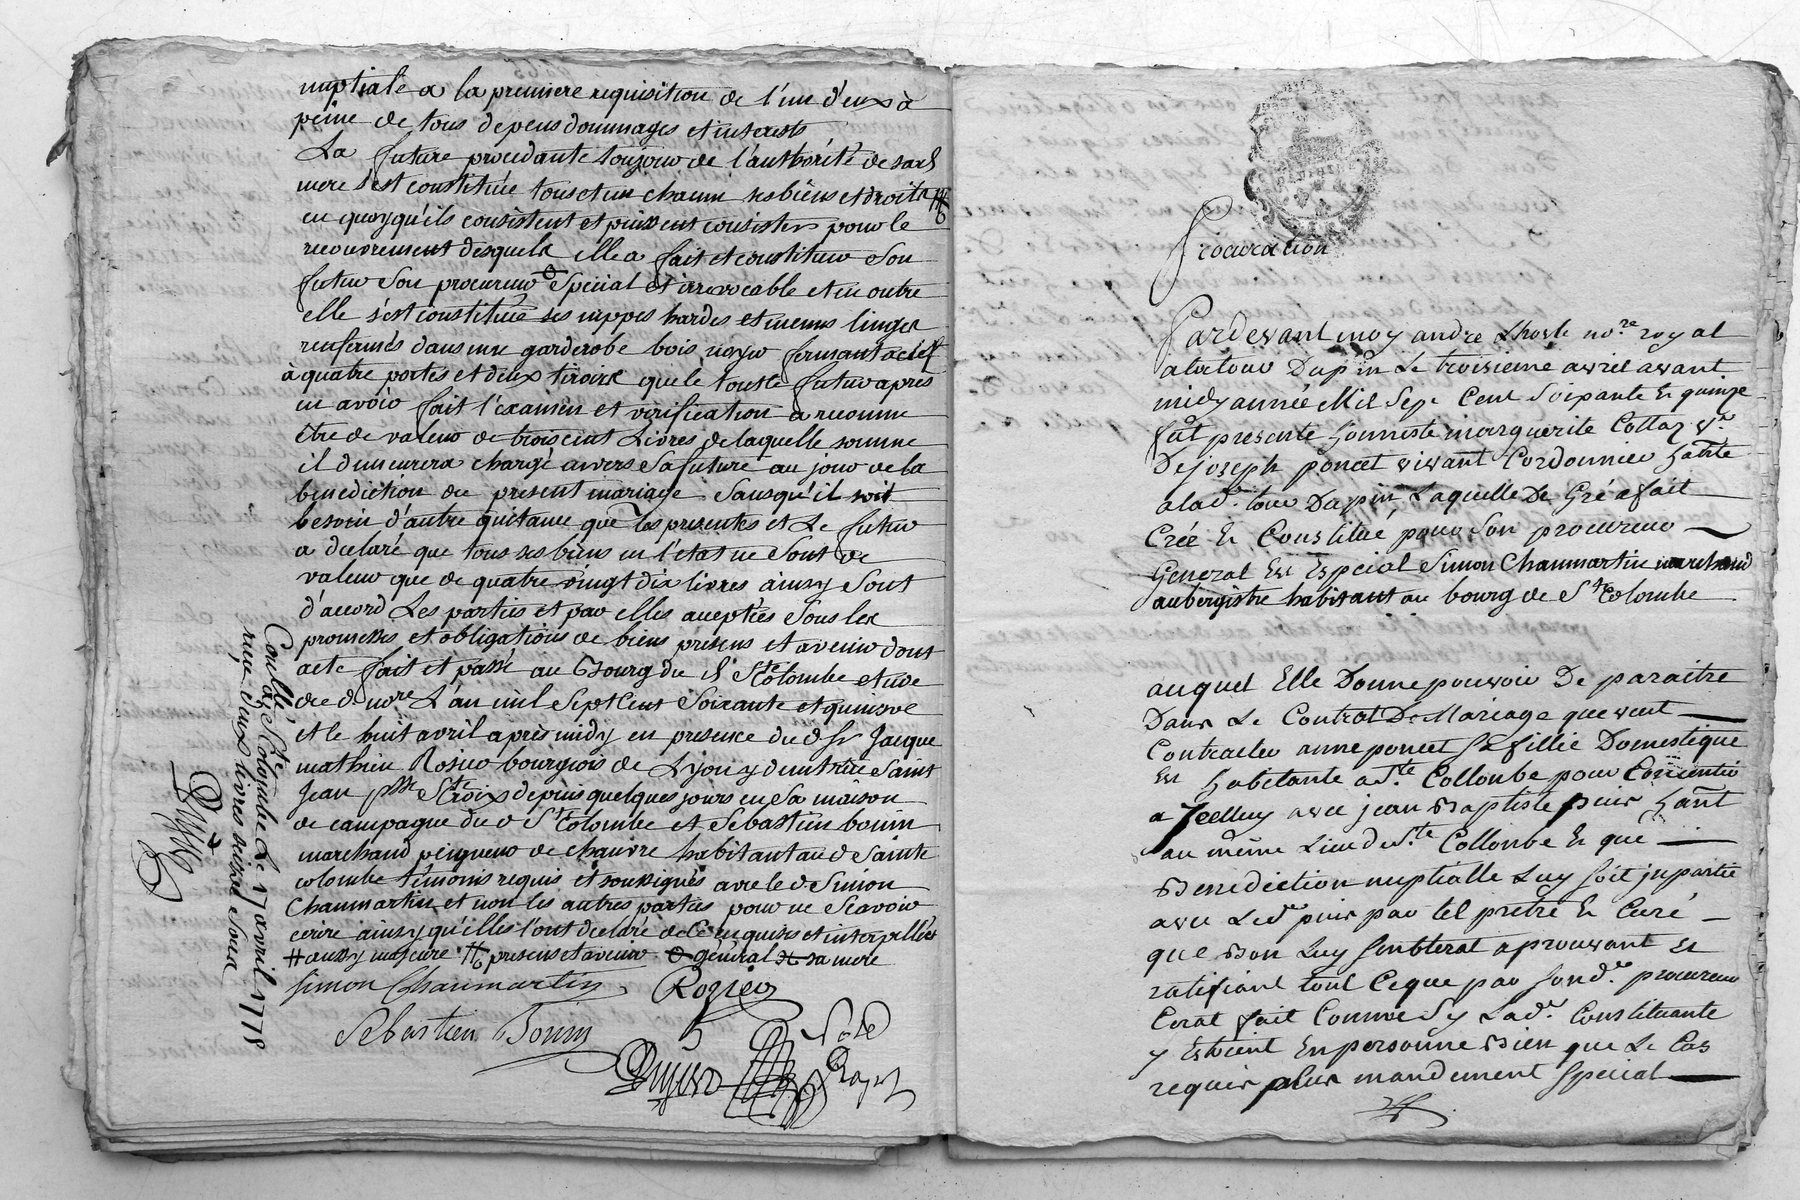 nuptiale a la premiere requisition de l'un d'eux à
peine de tous depens dommages et interests
La future procedante toujour de l'authorité de sad
mere s'est constituée tous et un chacun ses biens et droits #
en quoy qu'ils consistent et puissent consister pour le
recouvrement desquels elle a fait et constitue son
futur son procureur special et irrevocable et en outre
elle s'est constituée ses nippes hardes et menus linges
renfermés dans une garderobe bois noyer fermant a clef
à quatre portes et deux tiroirs que le tout le futur apres
en avoir fait l'examen et verification a reconnu
être de valeur de trois cent Livres de laquelle somme
il demeurera chargé anvers sa future au jour de la
benediction du present mariage sans qu'il soit
besoin d'autre quitance que les presentes et Le futur
a declaré que tous ses biens en l'etat ne sont de
valeur que de quatre vingt dix livres ainsy sont
d'accord Les parties et par elles aceptées sous les
promesses et obligations de biens presens et avenir dont
acte fait et passé au Bourg du d Ste Colombe etude
de d nore L'an mil sept cent soixante et quinze
et le huit avril après midy en presence du d Sr Jacque
mathieu Rozier bourgeois de Lyon y demt rue saint
Jean psse Ste Croix depuis quelques jours en sa maison
de campagne du d Ste Colombe et Sebastien bonin
marchand peigneur de chanvre habitant au d Sainte
colombe témoins requis et soussignés avec le d Simon
Chaumartin et non les autres parties pour ne scavoir
ecrire ainsy qu'elles l'ont declaré de ce enquises et interpellées
# aussy majeure # presens et avenir général sa mere
simon Chaumartin Rozier
sebastien Bonin
Coullé a Ste Colombe Le 17 avril 1775
reçu deux livres seize sous
Procuration
Pardevant moy andre Lhoste nore royal
alatour Dupin Le troisieme avril avant
midy année Mil Sept Cent Soixante Et quinze
fut presente honneste marguerite Collaz Ve
De joseph poncet vivant Cordonnier habte
alade tour Dupin Laquelle De Gré a fait
Créé Et Constitué pour Son procureur
General Et Especial Simon Chaumartin marchand
aubergiste habitant au bourg de Ste Colombe
auquel Elle Donne pouvoir De paraitre
Dans Le Contrat De Mariage que veut
Contracter anne poncet sa fillie Domestique
Et habitante a Ste Collombe pour
a Jcelluy avec jean Baptiste puis habt
au même Lieu de Ste Collombe Et que
Benediction nuptialle Luy soit jnpartie
avec Ledt puis par tel pretre Et Curé
que Bon Luy semblerat aprouvant Et
ratifiant tout Ceque par sondt procureur
Serat fait Comme Sy Lade Constituante
y Estoient En personne Bien que Le Cas
requis plus mandement special